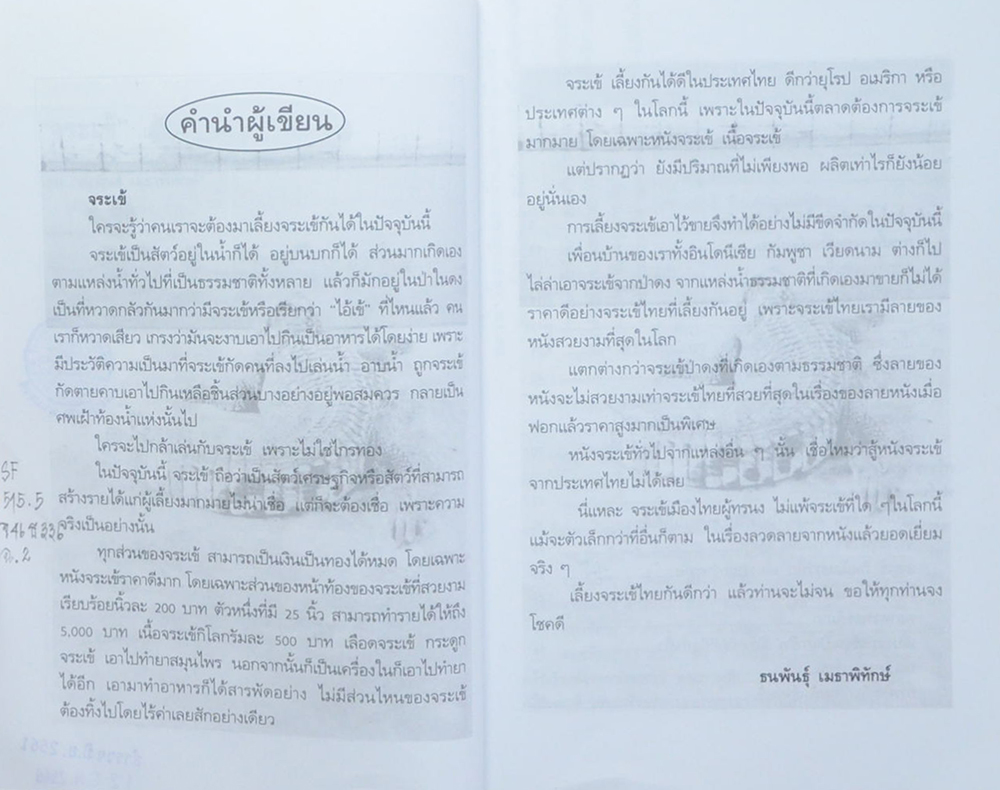 คำนำผู้เขียน
จระเข้
ใครจะรู้ว่าคนเราจะต้องมาเลี้ยงจระเข้กันได้ในปัจจุบันนี้
จระเข้เป็นสัตว์อยู่ในน้ำก็ได้ อยู่บนบกก็ได้ ส่วนมากเกิดเอง
ตามแหล่งน้ำทั่วไปที่เป็นธรรมชาติทั้งหลาย แล้วก็มักอยู่ในป่าในดง
เป็นที่หวาดกลัวกันมากกว่ามีจระเข้หรือเรียกว่า "ไอ้เข้" ที่ไหนแล้ว คน
เราก็หวาดเสียว เกรงว่ามันจะงาบเอาไปกินเป็นอาหารได้โดยง่าย เพราะ
มีประวัติความเป็นมาที่จระเข้กัดคนที่ลงไปเล่นน้ำ อาบน้ำ ถูกจระเข้
กัดตายคาบเอาไปกินเหลือชิ้นส่วนบางอย่างอยู่พอสมควร กลายเป็น
ศพเฝ้าท้องน้ำแห่งนั้นไป
ใครจะไปกล้าเล่นกับจระเข้ เพราะไม่ใช่ไกรทอง
ในปัจจุบันนี้ จระเข้ ถือว่าเป็นสัตว์เศรษฐกิจหรือสัตว์ที่สามารถ
สร้างรายได้แก่ผู้เลี้ยงมากมายไม่น่าเชื่อ แต่ก็จะต้องเชื่อ เพราะความ
จริงเป็นอย่างนั้น
ทุกส่วนของจระเข้ สามารถเป็นเงินเป็นทองได้หมด โดยเฉพาะ
หนังจระเข้ราคาดีมาก โดยเฉพาะส่วนของหน้าท้องของจระเข้ที่สวยงาม
เรียบร้อยนิ้วละ 200 บาท ตัวหนึ่งที่มี 25 นิ้ว สามารถทำรายได้ให้ถึง
5,000 บาท เนื้อจระเข้กิโลกรัมละ 500 บาท เลือดจระเข้ กระดูก
จระเข้ เอาไปทำยาสมุนไพร นอกจากนั้นก็เป็นเครื่องในก็เอาไปทำยา
ได้อีก เอามาทำอาหารก็ได้สารพัดอย่าง ไม่มีส่วนไหนของจระเข้
ต้องทิ้งไปโดยไร้ค่าเลยสักอย่างเดียว
SF
515.5
ฉ.2
จระเข้ เลี้ยงกันได้ดีในประเทศไทย ดีกว่ายุโรป อเมริกา หรือ
ประเทศต่าง ๆ ในโลกนี้ เพราะในปัจจุบันนี้ตลาดต้องการจระเข้
มากมาย โดยเฉพาะหนังจระเข้ เนื้อจระเข้
แต่ปรากฏว่า ยังมีปริมาณที่ไม่เพียงพอ ผลิตเท่าไรก็ยังน้อย
อยู่นั่นเอง
การเลี้ยงจระเข้เอาไว้ขายจึงทำได้อย่างไม่มีขีดจำกัดในปัจจุบันนี้
เพื่อนบ้านของเราทั้งอินโดนีเซีย กัมพูชา เวียดนาม ต่างก็ไป
ไล่ล่าเอาจระเข้จากป่าดง จากแหล่งน้ำธรรมชาติที่เกิดเองมาขายก็ไม่ได้
ราคาดีอย่างจระเข้ไทยที่เลี้ยงกันอยู่ เพราะจระเข้ไทยเรามีลายของ
หนังสวยงามที่สุดในโลก
แตกต่างกว่าจระเข้ป่าดงที่เกิดเองตามธรรมชาติ ซึ่งลายของ
หนังจะไม่สวยงามเท่าจระเข้ไทยที่สวยที่สุดในเรื่องของลายหนังเมื่อ
ฟอกแล้วราคาสูงมากเป็นพิเศษ
หนังจระเข้ทั่วไปจากแหล่งอื่น ๆ นั้น เชื่อไหมว่าสู้หนังจระเข้
จากประเทศไทยไม่ได้เลย
นี่แหละ จระเข้เมืองไทยผู้ทรนง ไม่แพ้จระเข้ที่ใด ๆในโลกนี้
แม้จะตัวเล็กกว่าที่อื่นก็ตาม ในเรื่องลวดลายจากหนังแล้วยอดเยี่ยม
จริง ๆ
เลี้ยงจระเข้ไทยกันดีกว่า แล้วท่านจะไม่จน ขอให้ทุกท่านจง
โชคดี
ธนพันธุ์ เมธาพิทักษ์